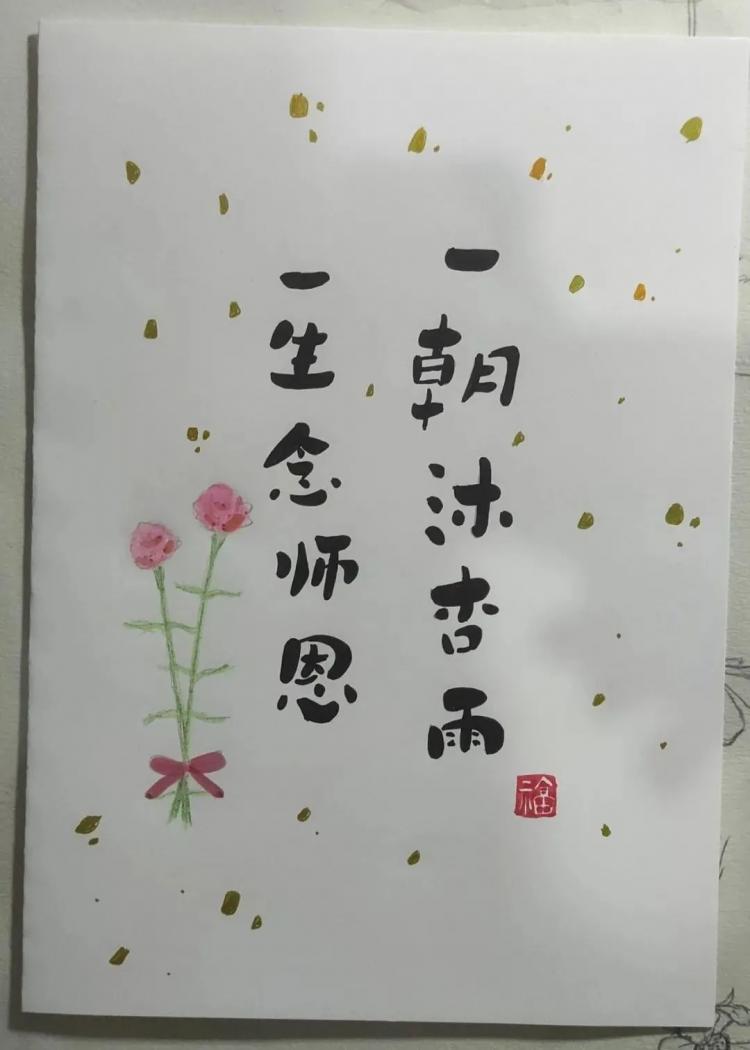 一朝沐杏雨
一生念师恩
福